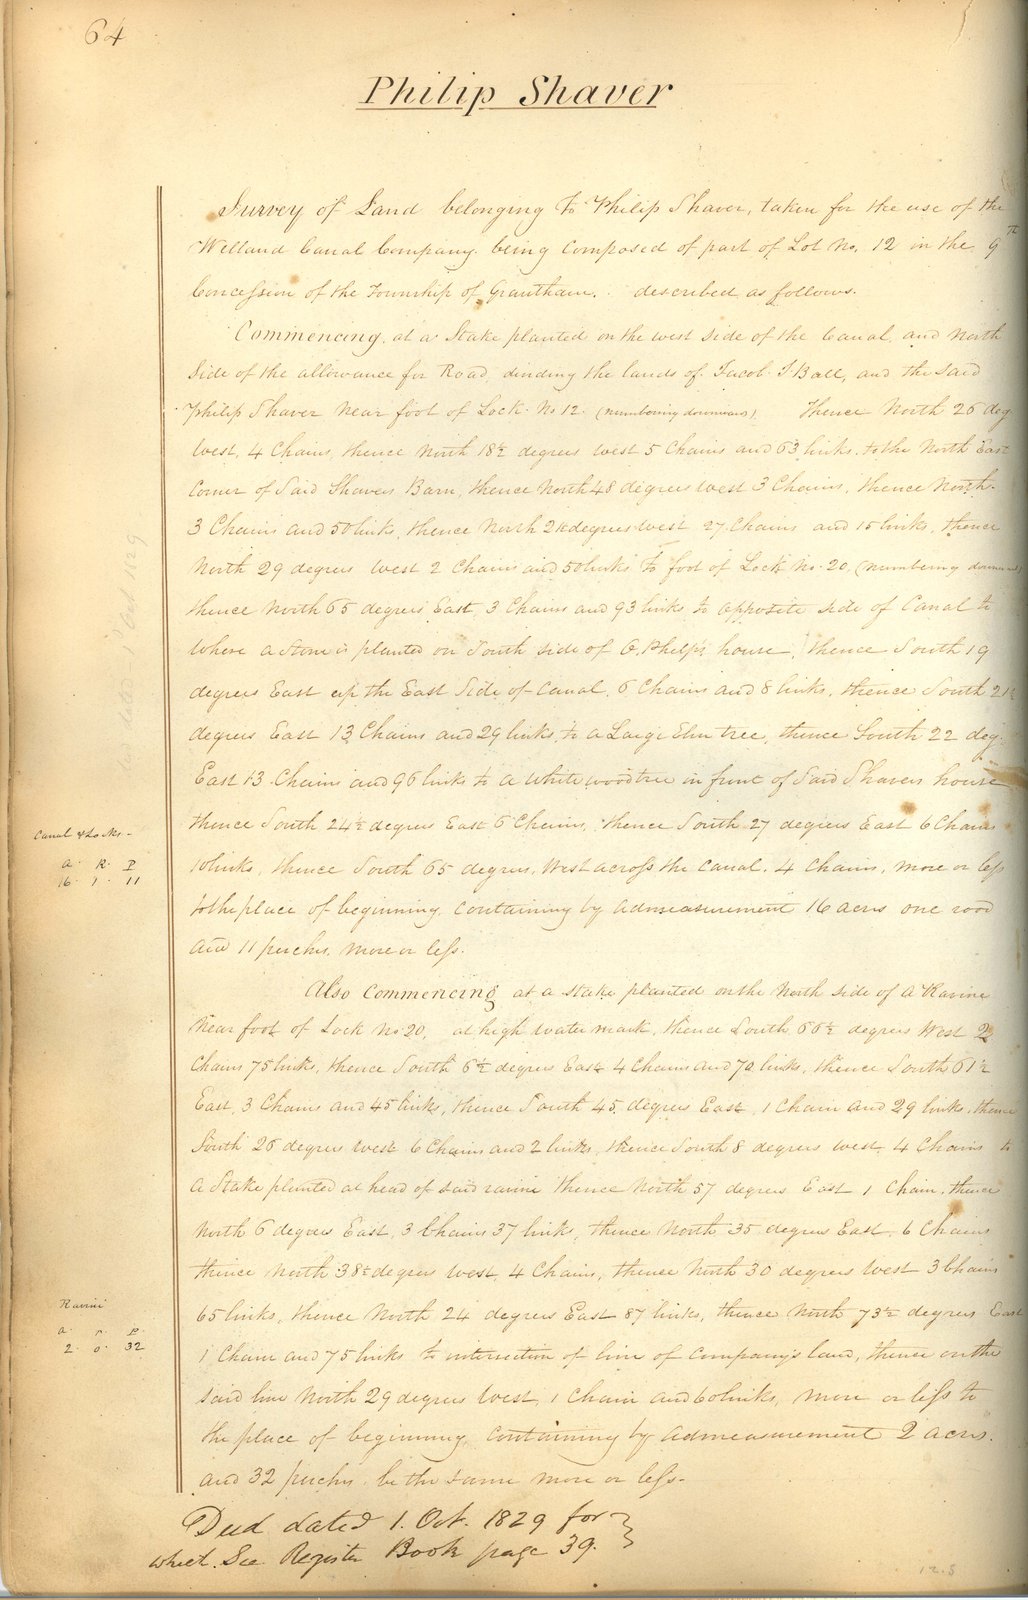 64
Philip Shaver
Survey of Land belonging to Philip Shaver, taken for the use of the
Welland Canal Company. being composed of part of Lot No. 12 in the 9th
Concession of the Township of Grantham. described as follows.
Commencing at a Stake planted on the west side of the Canal, and North
Side of the allowance for Road, dividing the lands of Jacob I. Ball, and the said
Philip Shaver near foot of Lock No 12. (numbering downwards), thence North 26 deg
West, 4 Chains, thence North 18½ degrees west 5 Chains and 63 links. to the North East
Corner of Said Shavers Barn, thence North 48 degrees west 3 Chains, thence North.
3 Chains and 50 links, thence North degrees west 27 Chains and 15 links, thence
North 29 degrees west 2 Chains and 50 links to foot of Lock No. 20, (numbering downwards)
thence North 65 degrees East 3 Chains and 93 links to opposite side of Canal to
where a Stone is planted on South side of O. Phelps house, thence South 19
degrees East up the East Side of Canal, 6 Chains and 8 links, thence South 21½
degrees East 13 Chains and 29 links, to a Large Elm tree, thence South 22 deg.
East 13 Chains and 96 links to a white wood tree in front of Said Shavers house
thence South 24½ degrees East 6 Chains, thence South 27 degrees East 6 Chains
10 links, thence South 65 degrees, West across the Canal, 4 Chains, more or less
to the place of beginning, containing by admeasurement 16 acres one rood
and 11 perches, more or less.
Canal & Locks -
A. R. P
16. 1. 11
Also Commencing at a stake planted on the North side of a Ravine
Near foot of Lock No 20, at high water mark, thence South 66½ degrees West 2
Chains 75 links, thence South 6½ degrees East 4 Chains and 70 links, thence South 61½
East, 3 Chains and 45 links, thence South 45 degrees East, 1 Chain and 29 links, thence
South 26 degrees west 6 Chains and 2 links, thence South 8 degrees west 4 Chains to
a Stake planted at head of said ravine thence North 57 degrees East 1 Chain, thence
North 6 degrees East, 3 Chains 37 links, thence North 35 degrees East 6 Chains
thence North 38½ degrees west, 4 Chains, thence North 30 degrees West 3 Chains
65 links, thence North 24 degrees East 87 links, thence North 73½ degrees East
1 Chain and 75 links to intersection of line of Company's land, thence on the
said line North 29 degrees West, 1 Chain and 60 links, more or less to
the place of beginning, containing by admeasurement 2 acres.
and 32 perches be the same more or less.
Ravine
a. r. P.
2. 0. 32
Deed dated 1 Oct 1829
Deed dated 1. Oct. 1829 for
which See Register Book page 39.
12.8